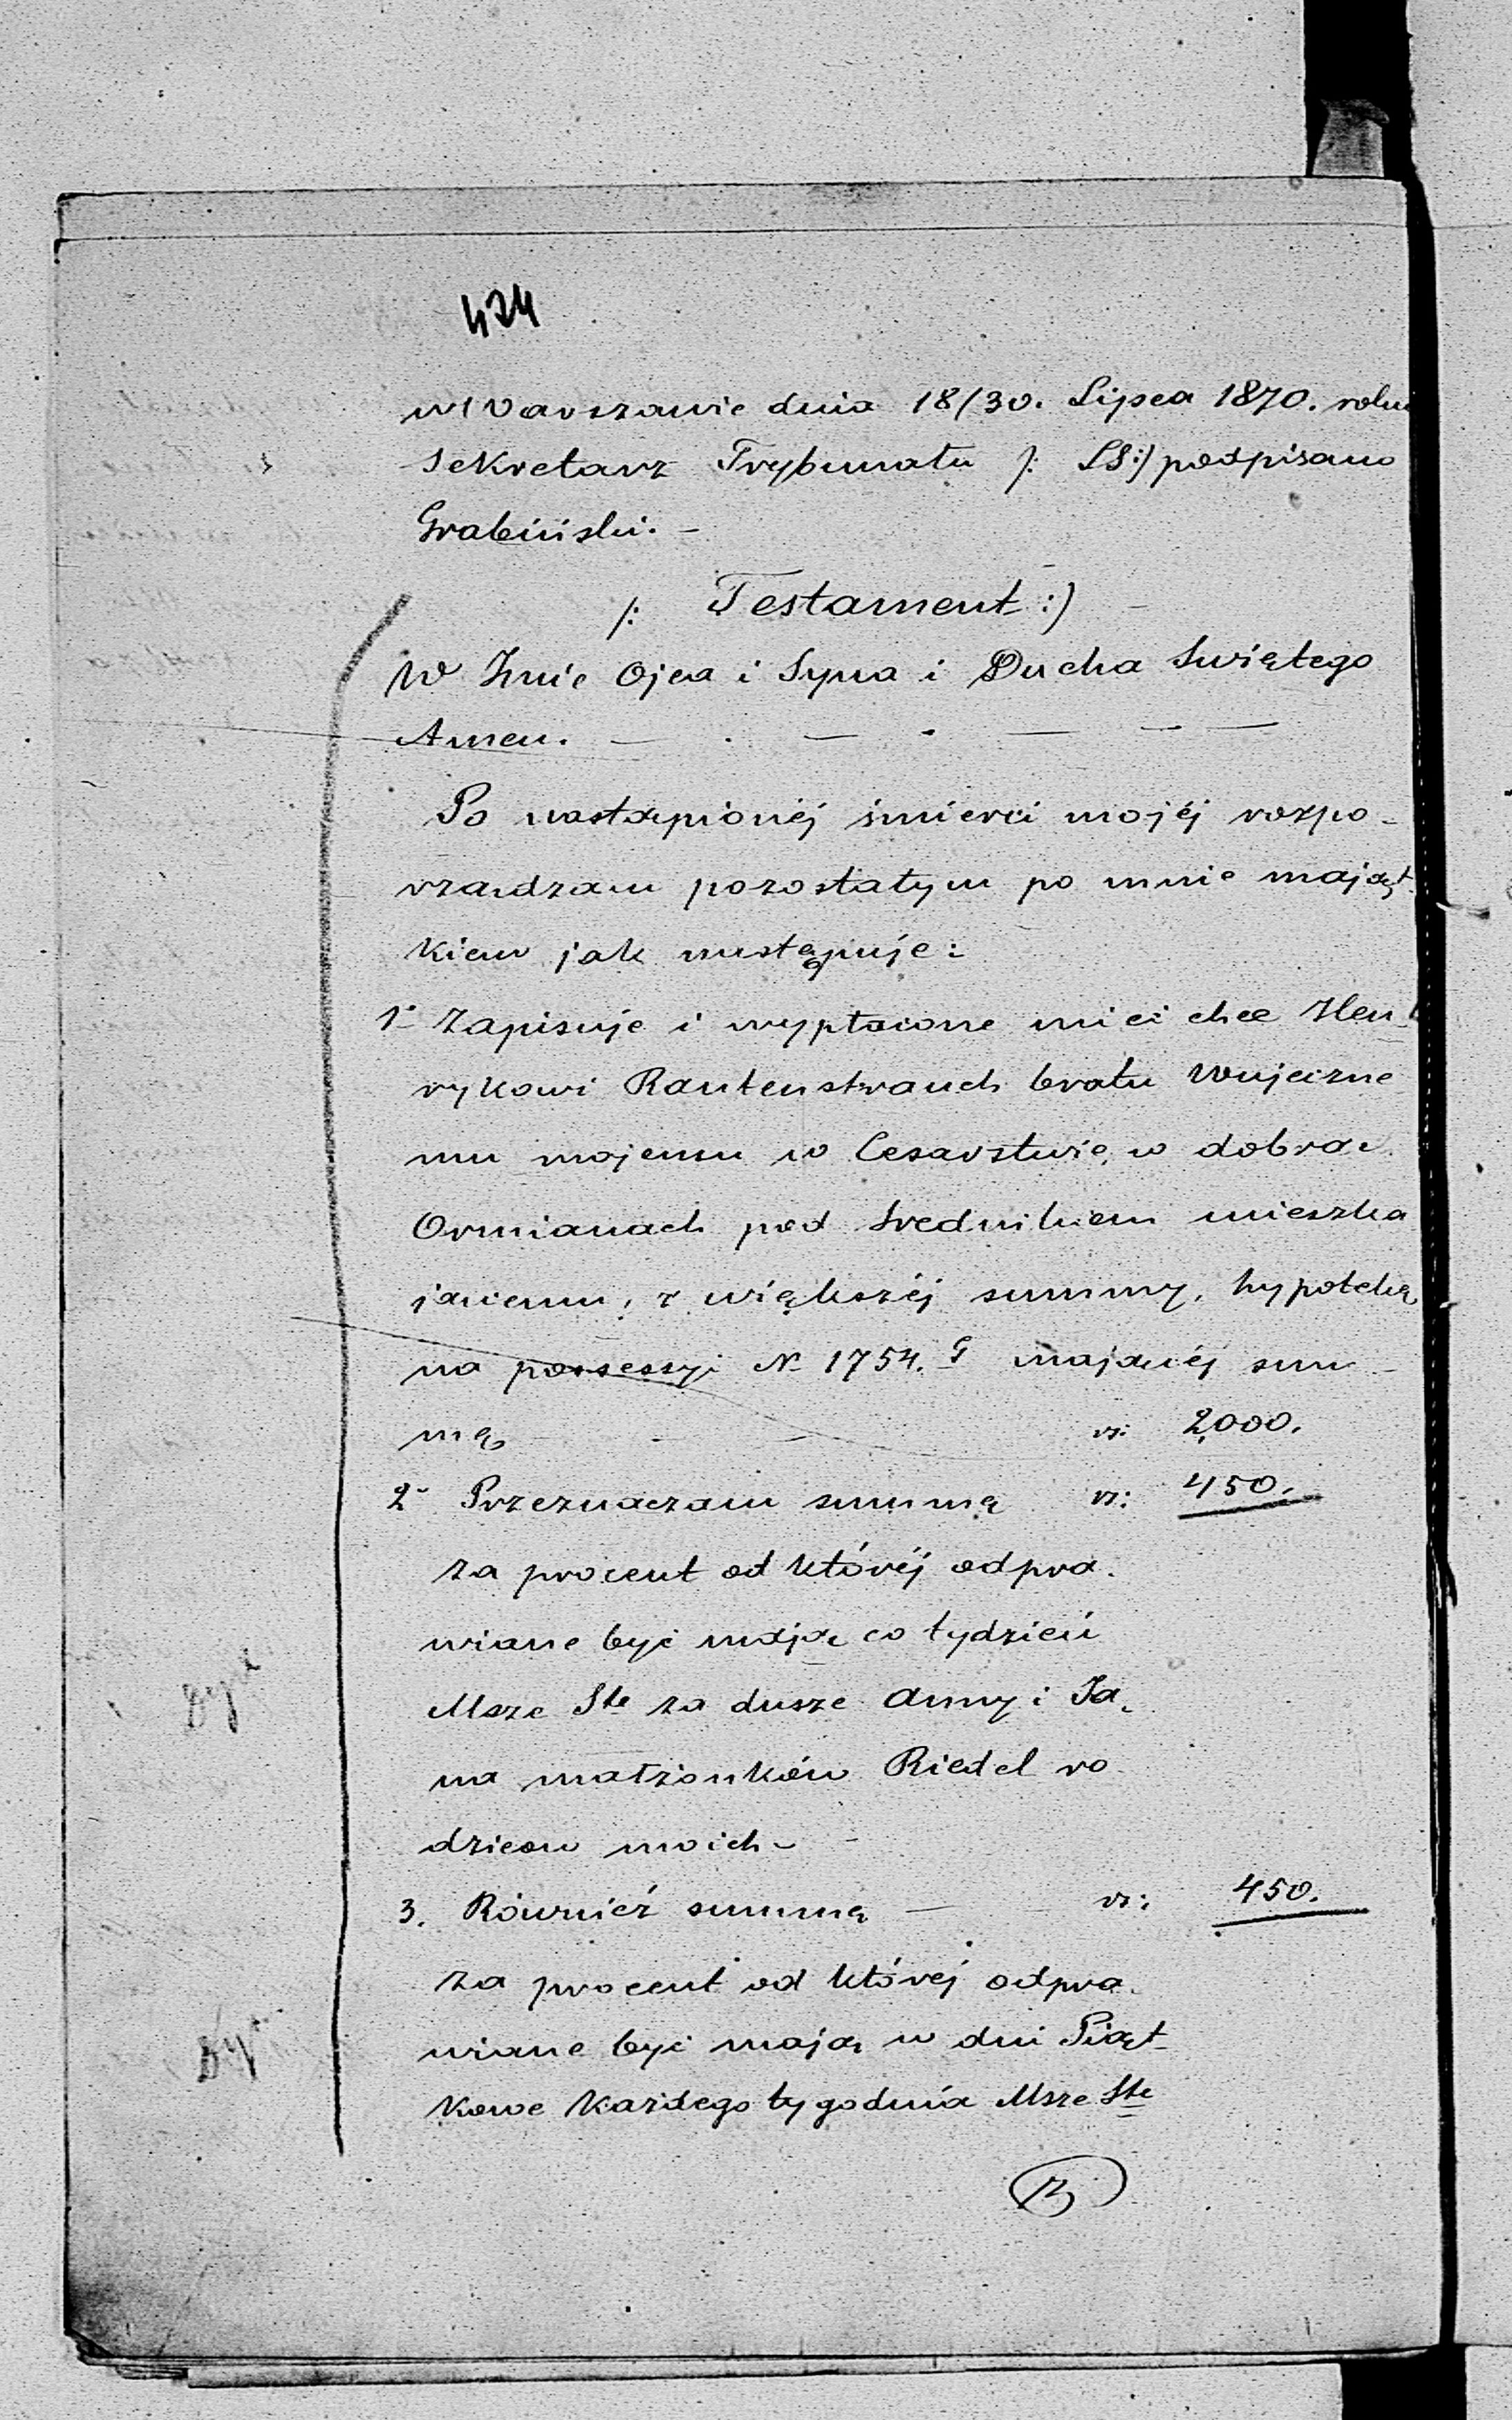 474
w Warszawie dnia 18/30. Lipca 1870. roku
Sekretarz Trybunału /: LS:/ podpisano
Grabiński. –
/: Testament :/
W Imie Ojca i Syna i Ducha Swiętego
Amen.
Po nastąpionéj śmierci mojéj rozpo-
rządzam pozostałym po mnie mająt-
kiem jak następuje:
1– Zapisuje i wypłacone mieć chce Hen-
rykowi Rautenstrauch bratu wujeczne
mu mojemu w Cesarstwie, w dobrac
Ormianach pod Srednikiem mieszka
jącemu, z większéj summy, hypotekę
na possessyi N– 1754. G mającéj sum-
mę rs: 2,000.
2– Przeznaczam summę rs: 450.
za procent od któréj odpra-
wiane być mają co tydzień
Msze Ste za dusze Anny i Ja-
na małżonków Riedel ro
dziców moich –
3. Również summę — rs: 450.
za procent od któréj odpra-
wiane być mają w dni Piąt-
kowe Każdego tygodnia Msze Ste